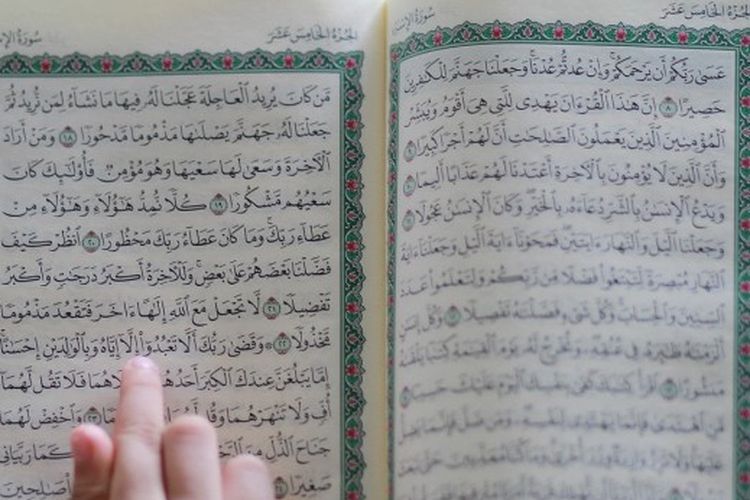 سُورَةُ الإِسْرَاءِ
الجُزْءُ الخَامِسَ عَشَرَ
عَسَىٰ رَبُّكُمْ أَن يَرْحَمَكُمْ وَإِنْ عُدتُّمْ عُدْنَا وَجَعَلْنَا جَهَنَّمَ لِلْكَٰفِرِينَ
حَصِيرًا ٨ إِنَّ هَٰذَا ٱلْقُرْءَانَ يَهْدِى لِلَّتِى هِىَ أَقْوَمُ وَيُبَشِّرُ
ٱلْمُؤْمِنِينَ ٱلَّذِينَ يَعْمَلُونَ ٱلصَّٰلِحَٰتِ أَنَّ لَهُمْ أَجْرًا كَبِيرًا ٩
وَأَنَّ ٱلَّذِينَ لَا يُؤْمِنُونَ بِٱلْءَاخِرَةِ أَعْتَدْنَا لَهُمْ عَذَابًا أَلِيمًا ١٠
وَيَدْعُ ٱلْإِنسَٰنُ بِٱلشَّرِّ دُعَآءَهُۥ بِٱلْخَيْرِ وَكَانَ ٱلْإِنسَٰنُ عَجُولًا ١١
وَجَعَلْنَا ٱلَّيْلَ وَٱلنَّهَارَ ءَايَتَيْنِ فَمَحَوْنَآ ءَايَةَ ٱلَّيْلِ وَجَعَلْنَآ ءَايَةَ
ٱلنَّهَارِ مُبْصِرَةً لِّتَبْتَغُوا۟ فَضْلًا مِّن رَّبِّكُمْ وَلِتَعْلَمُوا۟ عَدَدَ
ٱلسِّنِينَ وَٱلْحِسَابَ وَكُلَّ شَىْءٍ فَصَّلْنَٰهُ تَفْصِيلًا ١٢ وَكُلَّ إِنسَٰنٍ
أَلْزَمْنَٰهُ طَٰٓئِرَهُۥ فِى عُنُقِهِۦ وَنُخْرِجُ لَهُۥ يَوْمَ ٱلْقِيَٰمَةِ كِتَٰبًا يَلْقَىٰهُ
مَنشُورًا ١٣ ٱقْرَأْ كِتَٰبَكَ كَفَىٰ بِنَفْسِكَ ٱلْيَوْمَ عَلَيْكَ حَسِيبًا ١٤
مَّنِ ٱهْتَدَىٰ فَإِنَّمَا يَهْتَدِى لِنَفْسِهِۦ وَمَن ضَلَّ فَإِنَّمَا يَضِلُّ
الجُزْءُ الخَامِسَ عَشَرَ
سُورَةُ الإِسْ
مَّن كَانَ يُرِيدُ ٱلْعَاجِلَةَ عَجَّلْنَا لَهُۥ فِيهَا مَا نَشَآءُ لِمَن نُّرِيدُ ثُمَّ
جَعَلْنَا لَهُۥ جَهَنَّمَ يَصْلَىٰهَا مَذْمُومًا مَّدْحُورًا ١٨ وَمَنْ أَرَادَ
ٱلْءَاخِرَةَ وَسَعَىٰ لَهَا سَعْيَهَا وَهُوَ مُؤْمِنٌ فَأُو۟لَٰٓئِكَ كَانَ
سَعْيُهُم مَّشْكُورًا ١٩ كُلًّا نُّمِدُّ هَٰٓؤُلَآءِ وَهَٰٓؤُلَآءِ مِنْ
عَطَآءِ رَبِّكَ وَمَا كَانَ عَطَآءُ رَبِّكَ مَحْظُورًا ٢٠ ٱنظُرْ كَيْفَ
فَضَّلْنَا بَعْضَهُمْ عَلَىٰ بَعْضٍ وَلَلْءَاخِرَةُ أَكْبَرُ دَرَجَٰتٍ وَأَكْبَرُ
تَفْضِيلًا ٢١ لَّا تَجْعَلْ مَعَ ٱللَّهِ إِلَٰهًا ءَاخَرَ فَتَقْعُدَ مَذْمُومًا
مَّخْذُولًا ٢٢ ۞ وَقَضَىٰ رَبُّكَ أَلَّا تَعْبُدُوٓا۟ إِلَّآ إِيَّاهُ وَبِٱلْوَٰلِدَيْنِ إِحْسَٰنًا
إِمَّا يَبْلُغَنَّ عِندَكَ ٱلْكِبَرَ أَحَدُهُمَآ لَاهُمَا فَلَا تَقُل لَّهُمَآ
أُفٍّ وَلَا تَنْهَرْهُمَا وَقُل لَّهُمَا ٢٣ وَٱخْفِضْ لَهُمَا
جَنَاحَ ٱلذُّلِّ مِنَ كَمَا رَبَّيَانِى
صَغِيرًا ٢٤ صَٰلِحِينَ